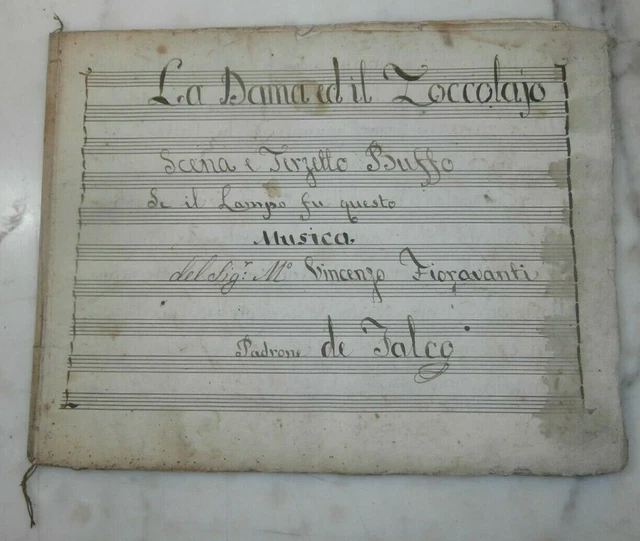 La Dama ed il Zoccolajo
Scena e Terzetto Buffo
Se il Lampo fu questo
Musica.
del Sig.r M.o Vincenzo Fioravanti
Padrone de Falco